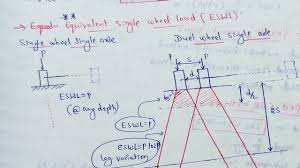 → Equal Equivalent single wheel load (ESWL)
Single wheel single axle
Duel wheel single axle
P
P P
S
d
d/2
2S
45°
ESWL=P
(@ any depth)
ESWL=P
ESWL=P to 2P
log variation